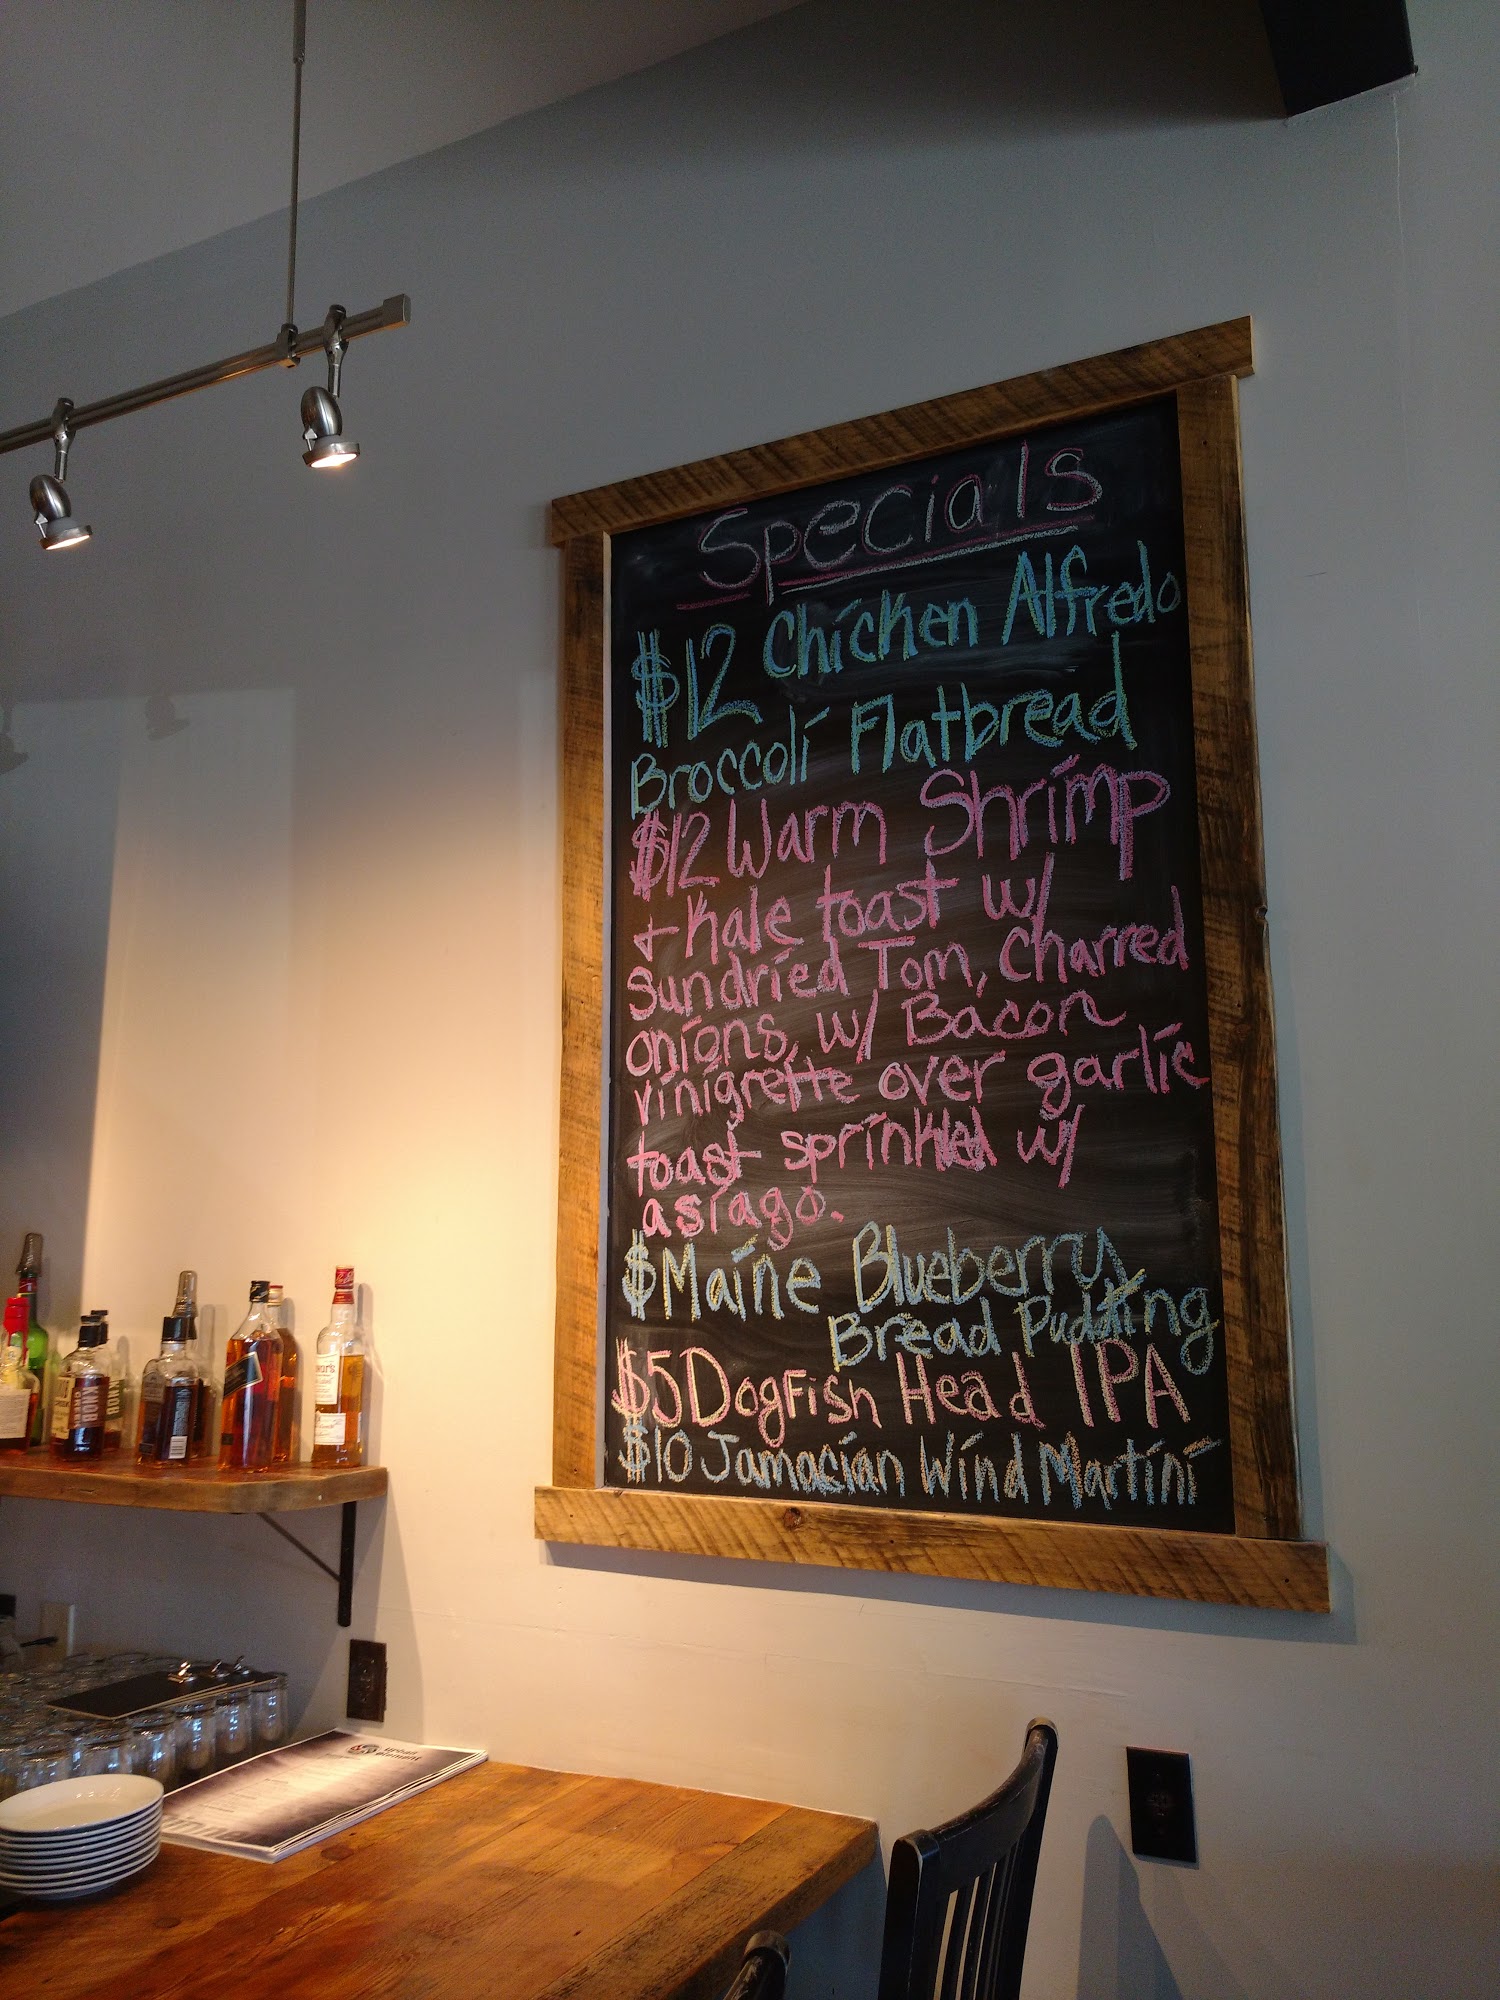 Specials
$12 Chicken Alfredo
Broccoli Flatbread
$12 Warm Shrimp
+ Kale toast w/
Sundried Tom, Charred
onions, w/ Bacon
vinigrette over garlic
toast sprinkled w/
asiago.
$ Maine Blueberry
Bread Pudding
$5 Dogfish Head IPA
$10 Jamacian Wind Martini
KNOB
urban
element